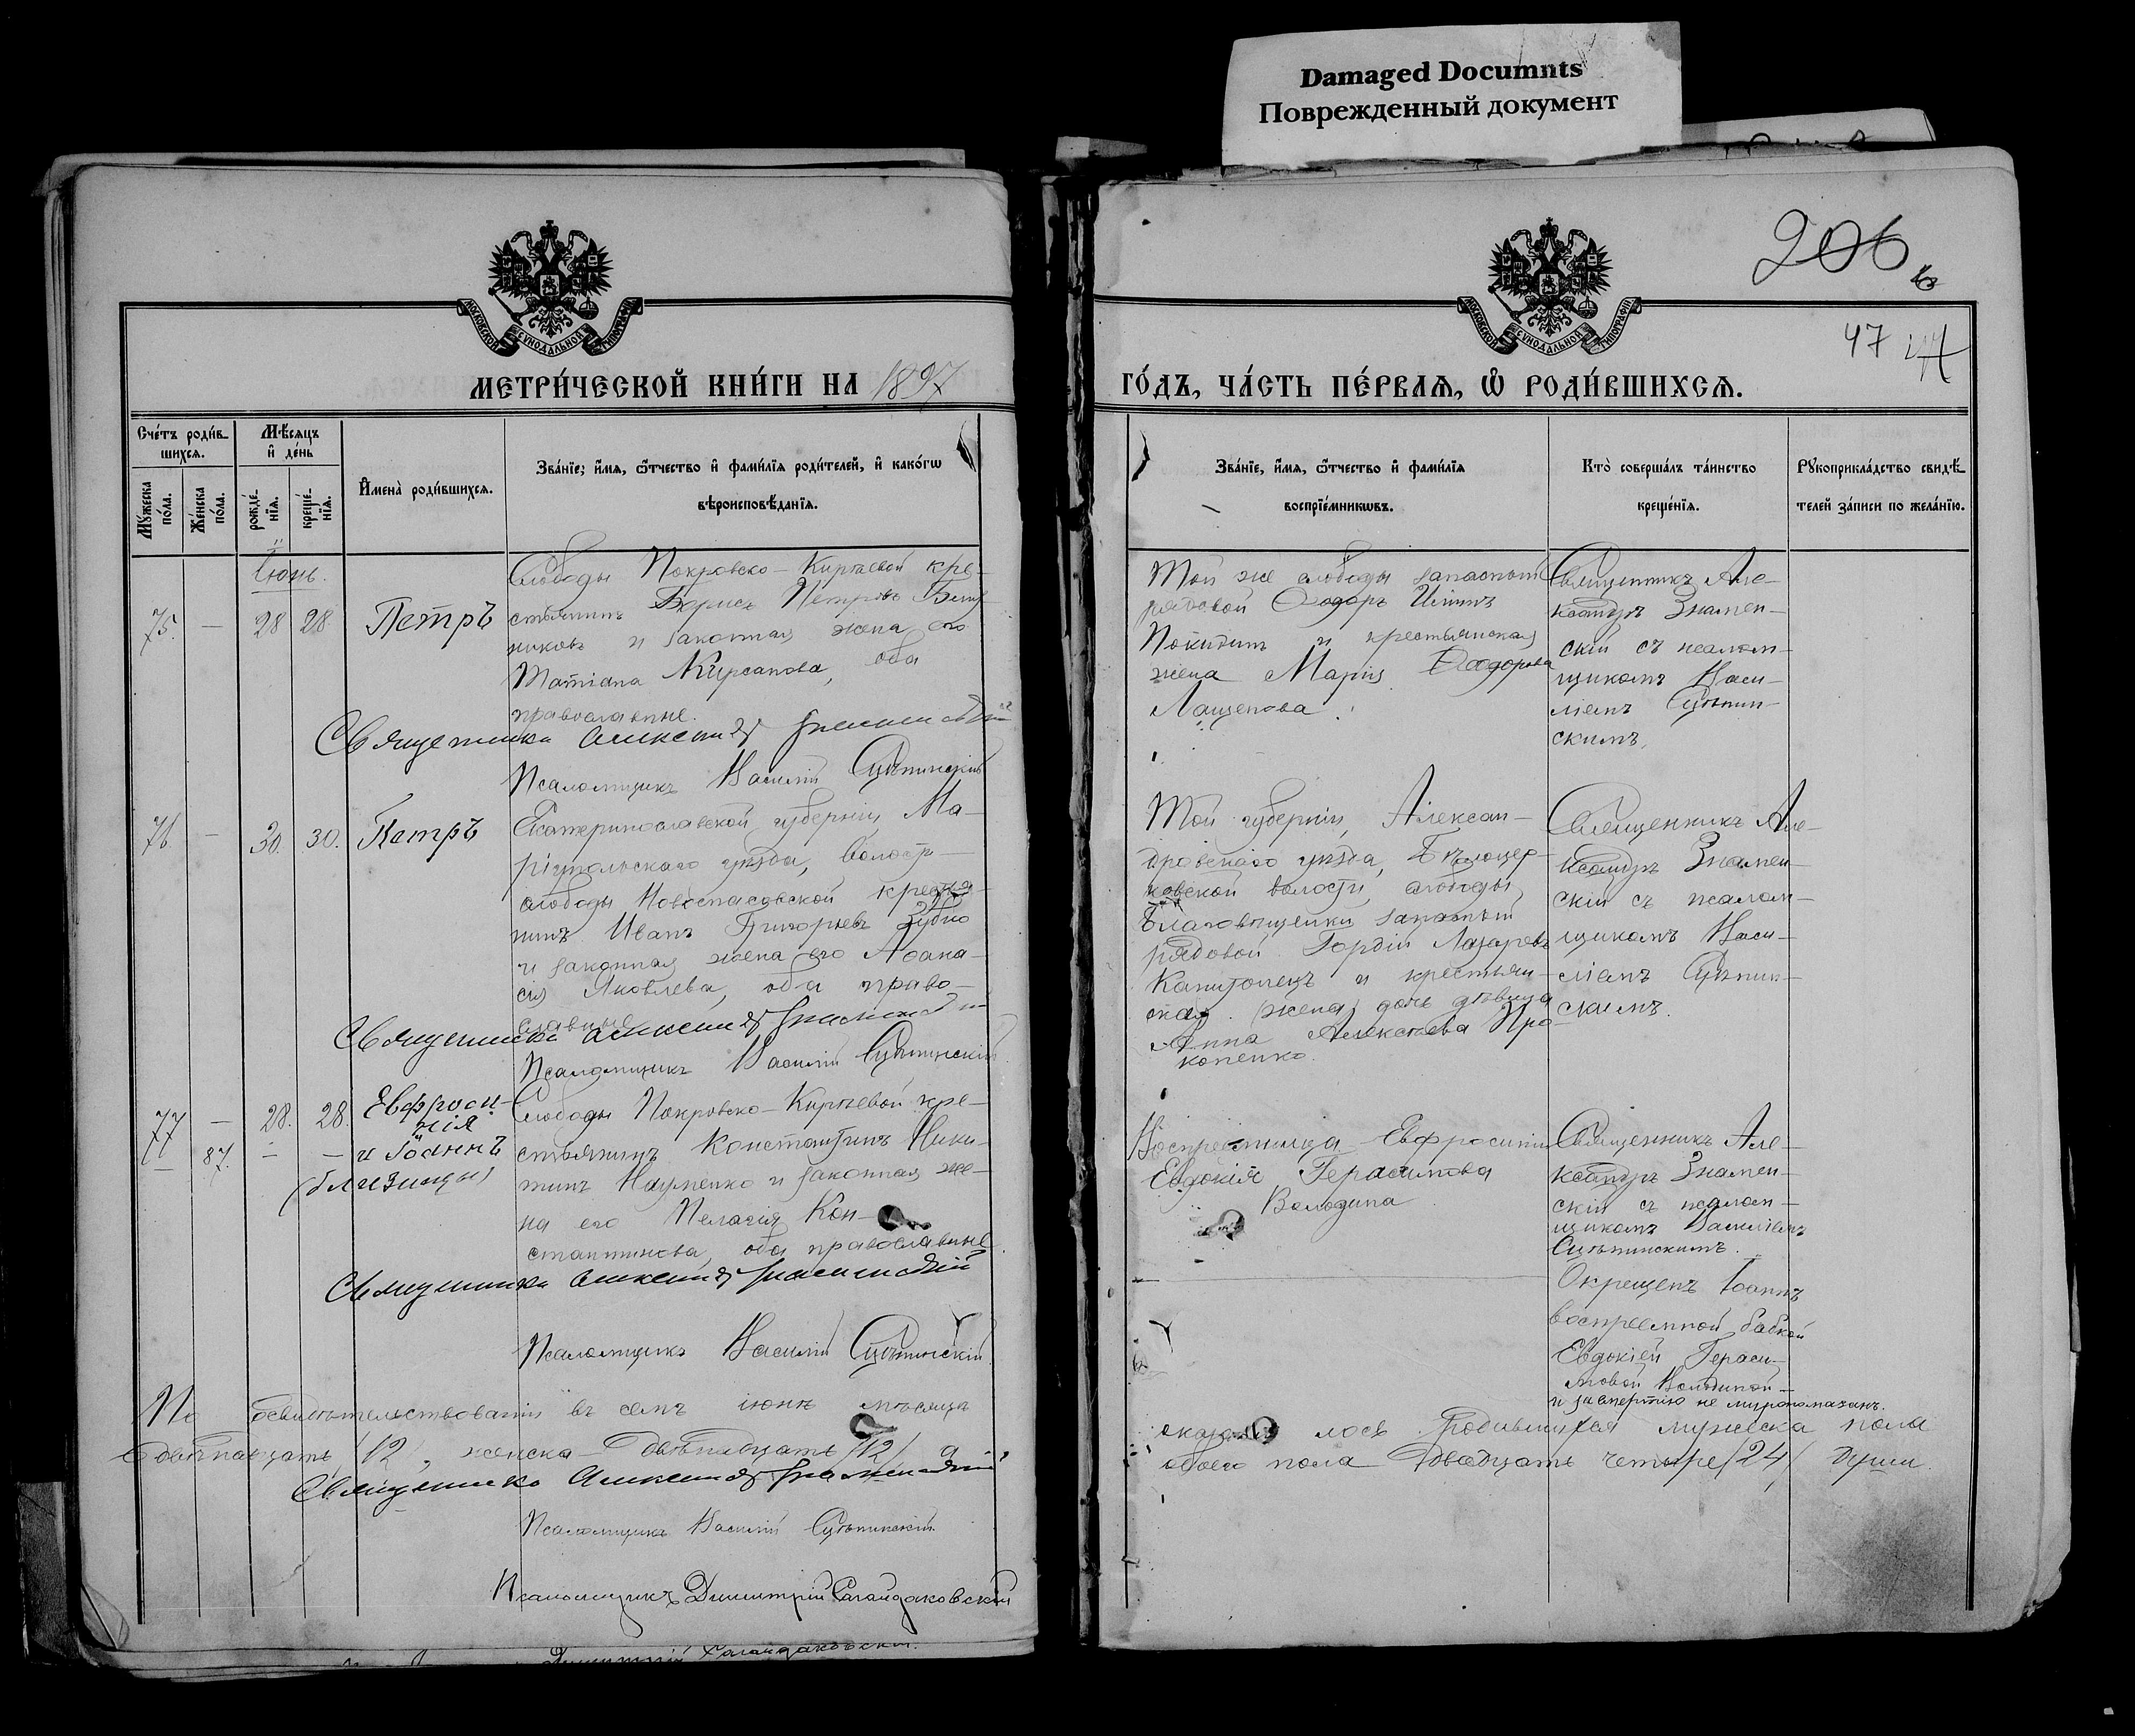 Damaged Documnts
Поврежденный документ
206
47
МОСКОВСКОЙ СѴНОДАЛЬНОЙ ТИПОГРАФІИ
МОСКОВСКОЙ СѴНОДАЛЬНОЙ ТИПОГРАФІИ
МЕТРИ́ЧЕСКОЙ КНИ́ГИ НА 1897
ГО́ДЪ, ЧА́СТЬ ПЕ́РВАѦ, Ѽ РОДИ́ВШИХСѦ.
Сче́тъ роди́в-
шихсѧ.
Мꙋ́жеска по́ла.
Же́нска по́ла.
Мѣ́сѧцъ
и҆ де́нь
рожде́-
нїѧ.
креще́-
нїѧ.
И҆мена̀ роди́вшихсѧ.
Зва́нїе, и҆́мѧ, ѻ҆́тчество и҆ фами́лїѧ роди́телей, и҆ како́гѡ
вѣроисповѣ́данїѧ.
Зва́нїе, и҆́мѧ, ѻ҆́тчество и҆ фами́лїѧ
воспрїе́мникѡвъ.
Кто̀ соверша́лъ та́инство
креще́нїѧ.
Рꙋкоприкла́дство свидѣ́-
телей за́писи по жела́нїю.
Іюнь.
75. — 28 28 Петръ
Слободы Покровско-Кирѣевой кре-
стьянинъ Борисъ Петровъ
никовъ и законная жена его
Татіана Кирсанова, оба
православные.
Священникъ Александръ Знаменскій
Псаломщикъ Василій Сцѣпинскій
Той же слободы запасный
рядовой Ѳеодоръ
и крестьянская
жена Марія Ѳеодорова
Лащенова.
Священникъ Але-
ксандръ Знамен-
скій съ псалом-
щикомъ Васи-
ліемъ Сцѣпин-
скимъ.
76. — 30. 30. Петръ
Екатеринославской губерніи, Ма-
ріупольскаго уѣзда, волости-
слободы Новоспасовской крестья-
нинъ Иванъ Григорьевъ Зубко
и законная жена его Аѳана-
сія Яковлева, оба право-
славные
Священникъ Александръ Знаменскій
Псаломщикъ Василій Сцѣпинскій.
Той губерніи, Алексан-
дровскаго уѣзда, Бѣлоцер-
ковской волости, слободы
Благовѣщенки запасный
рядовой Гордій Лазаревъ
и крестьян-
ская (жена) дочь дѣвица
Анна Алексѣева Про-
копенко.
Священникъ Але-
ксандръ Знамен-
скій съ псалом-
щикомъ Васи-
ліемъ Сцѣпин-
скимъ.
77 — 28. 28. Евфроси-
нія
87. — — и Іоаннъ
(близнецы)
Слободы Покровско-Кирѣевой кре-
стьянинъ Константинъ Ники-
тинъ Науменко и законная же-
на его Пелагія Кон-
стантинова, оба православные
Священникъ Александръ Знаменскій
Псаломщикъ Василій Сцѣпинскій.
Воспреемница Евфросиніи
Евдокія Герасимова
Вольдина
Священникъ Але-
ксандръ Знамен-
скій съ псалом-
щикомъ Василіемъ
Сцѣпинскимъ.
Окрещенъ Іоаннъ
воспреемной бабкой
Евдокіей Гераси-
мовой Вольдиной-
и за смертію не муропомазанъ.
По освидѣтельствованіи въ семъ іюнѣ мѣсяцѣ
оказалось родившихся мужеска пола
двѣнадцать /12/, женска двѣнадцать /12/ а
обоего пола двадцать четыре /24/ души.
Священникъ Александръ Знаменскій
Псаломщикъ Василій Сцѣпинскій.
Псаломщикъ Димитрій Сагайдаковскій
Димитрій Сагайдаковскій.